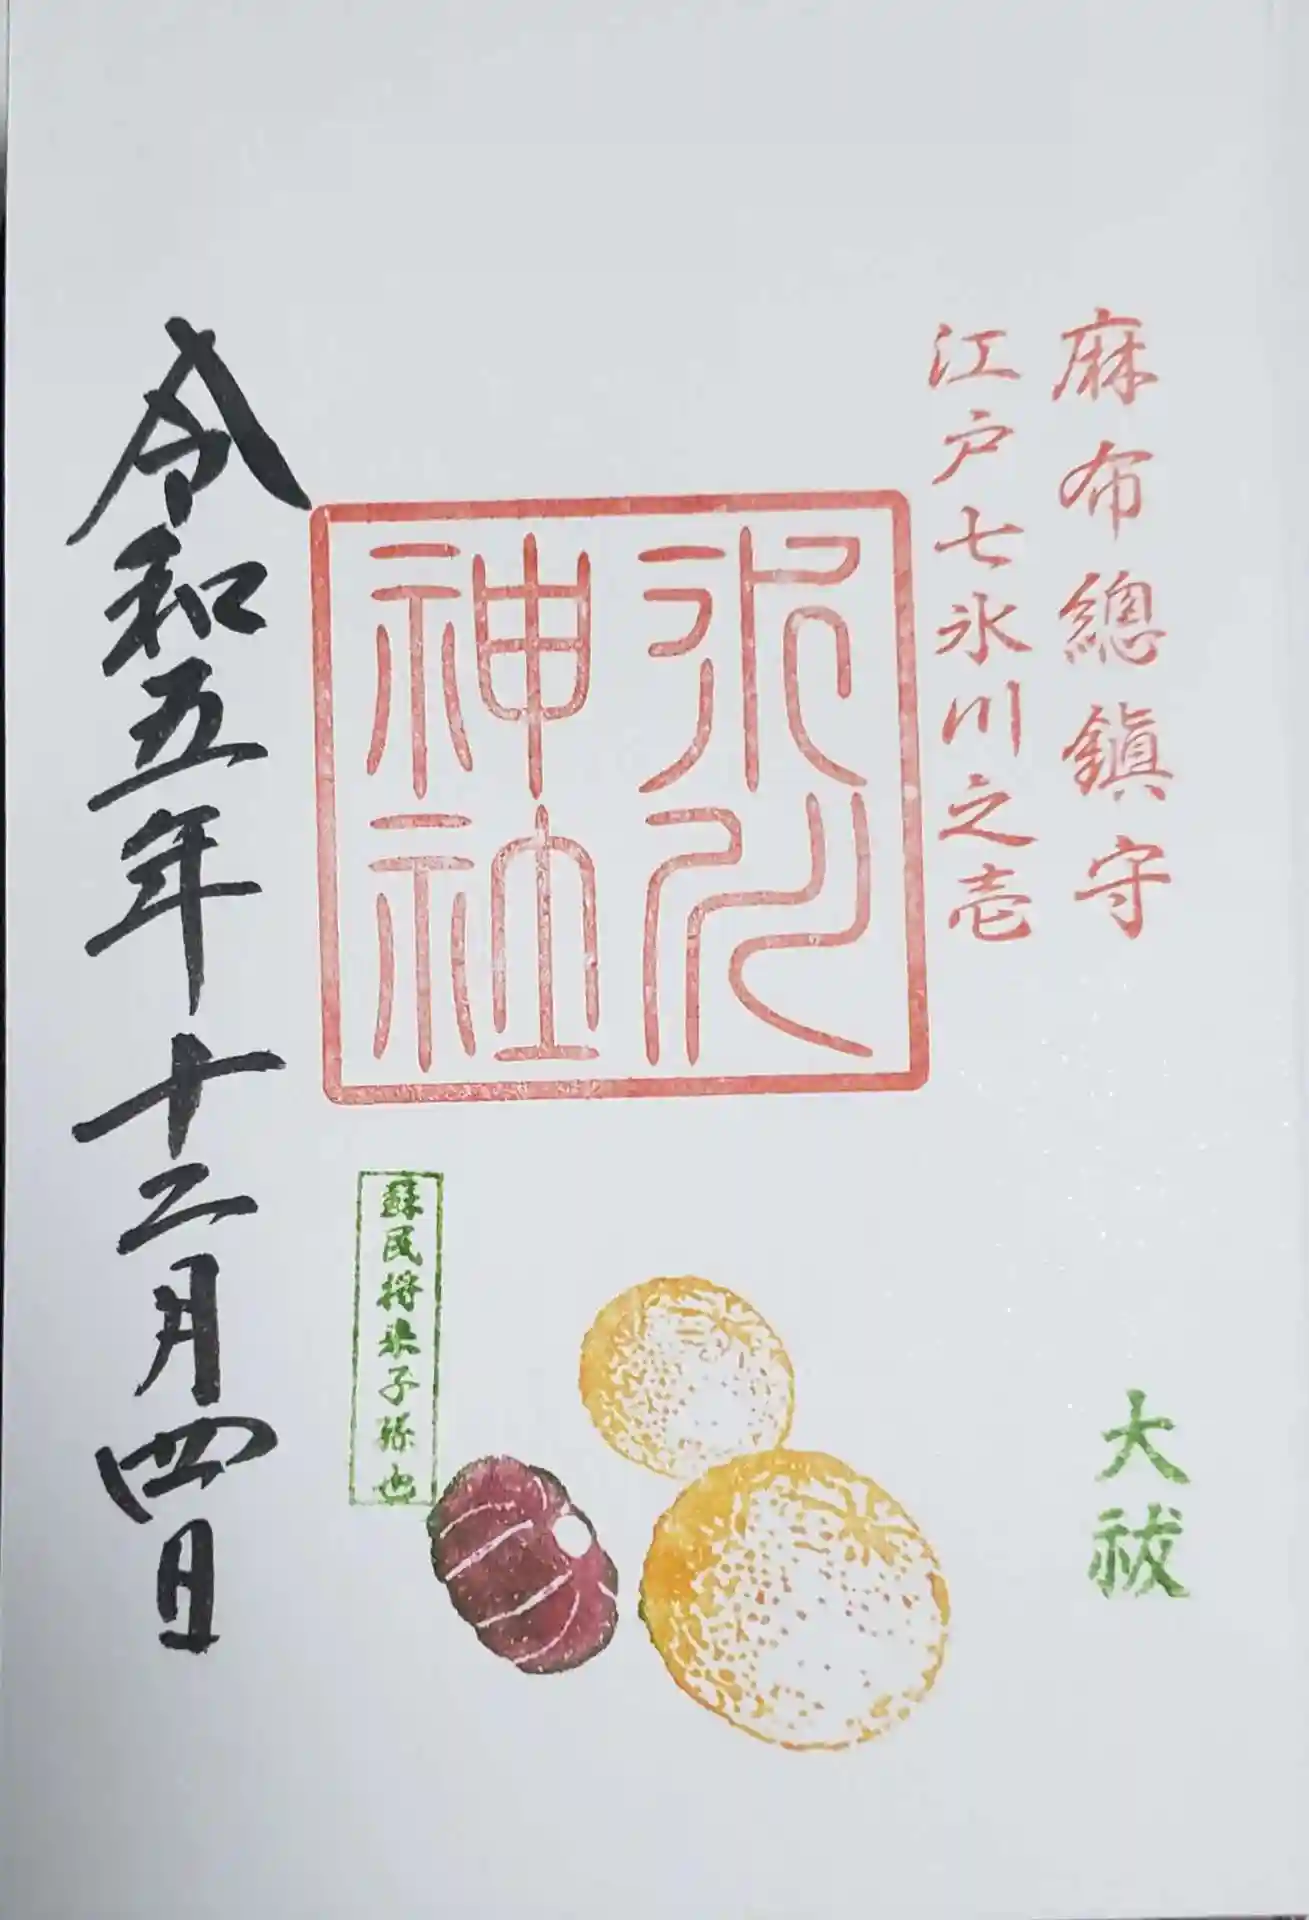 麻布總鎮守
江戸七氷川之壱
大祓
氷川
神社
蘇民将来子孫也
令和五年十二月四日